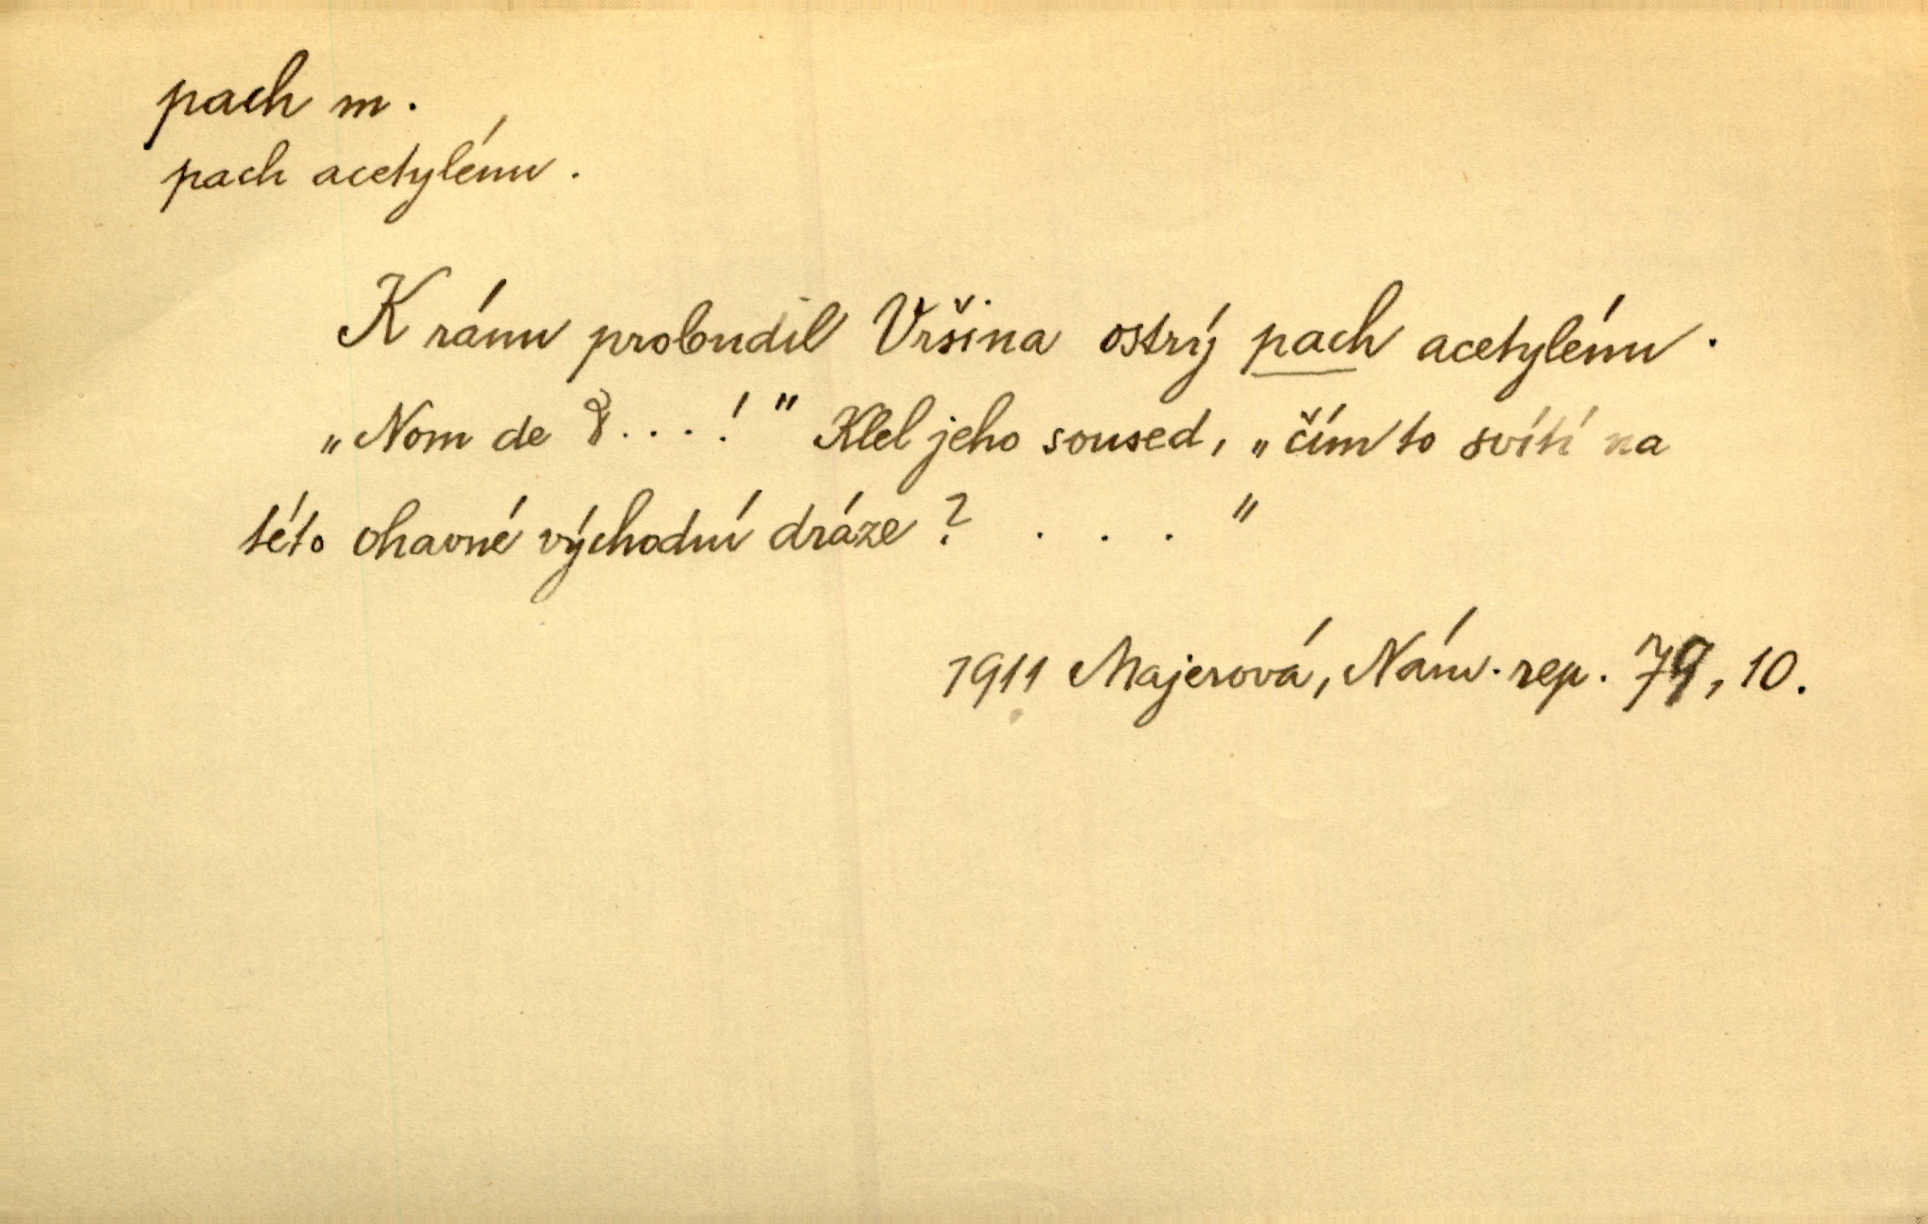 pach m.
pach acetylénu.
K ránu probudil Vršina ostrý pach acetylénu.
„Nom de D...!" Klel jeho soused, „čím to svítí na
této ohavné východní dráze? . . . "
1911 Majerová, Nám. rep. 79, 10.